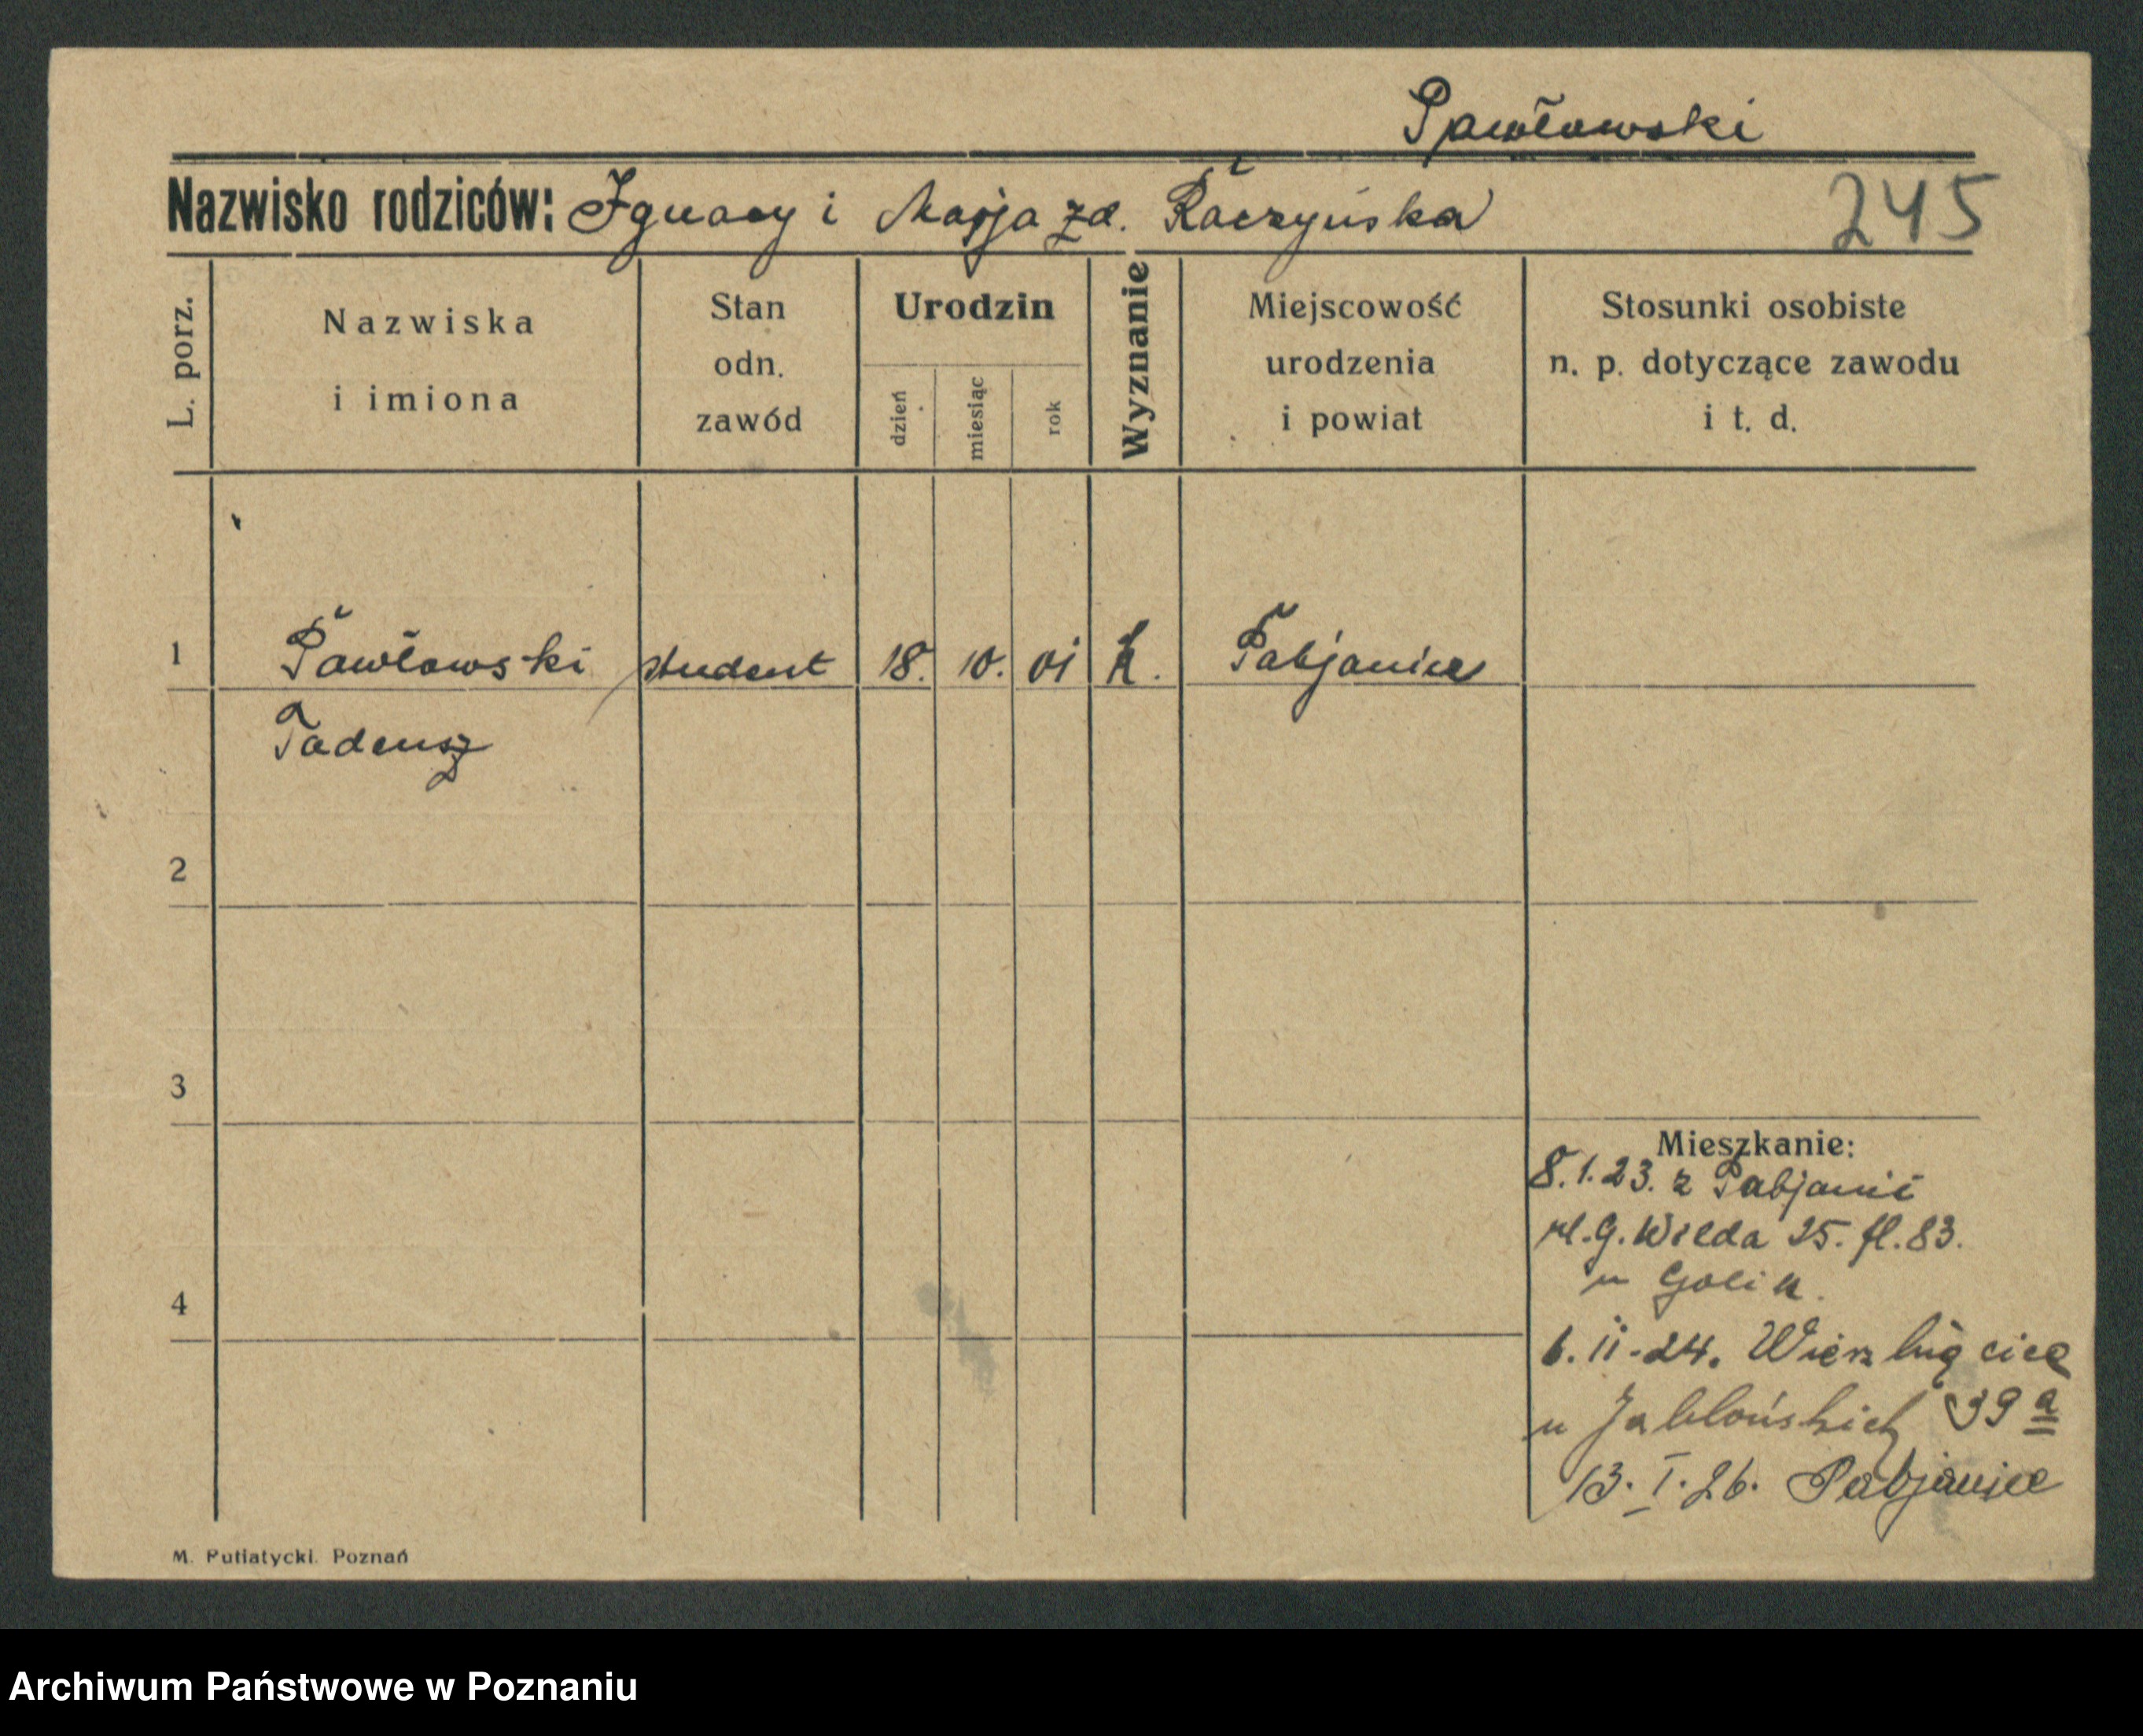 Pawłowski
Nazwisko rodziców: Ignacy i Marja zd. Raczyńska
245
L. porz.
Nazwiska
i imiona
Stan
odn.
zawód
Urodzin
dzień
miesiąc
rok
Wyznanie
Miejscowość
urodzenia
i powiat
Stosunki osobiste
n. p. dotyczące zawodu
i t. d.
1 Pawłowski student 18. 10. 01 k. Pabjanice
Tadeusz
2
3
4
Mieszkanie:
8.1.23. z Pabjanic
G. Wilda 25. fl. 83.
u Golik.
6.II.24. Wierzbięcice
u Jabłońskich 39a
13.I.26. Pabjanice
M. Putiatycki. Poznań
Archiwum Państwowe w Poznaniu